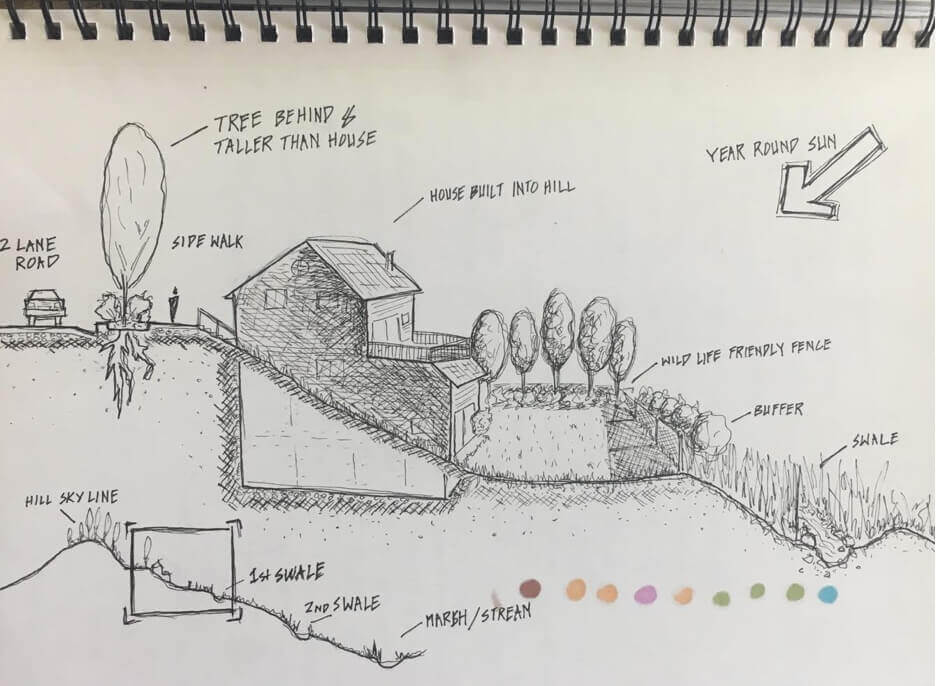 TREE BEHIND &
TALLER THAN HOUSE
YEAR ROUND SUN
HOUSE BUILT INTO HILL
2 LANE
ROAD
SIDE WALK
WILD LIFE FRIENDLY FENCE
BUFFER
SWALE
HILL SKY LINE
1st SWALE
2ND SWALE
MARSH/STREAN